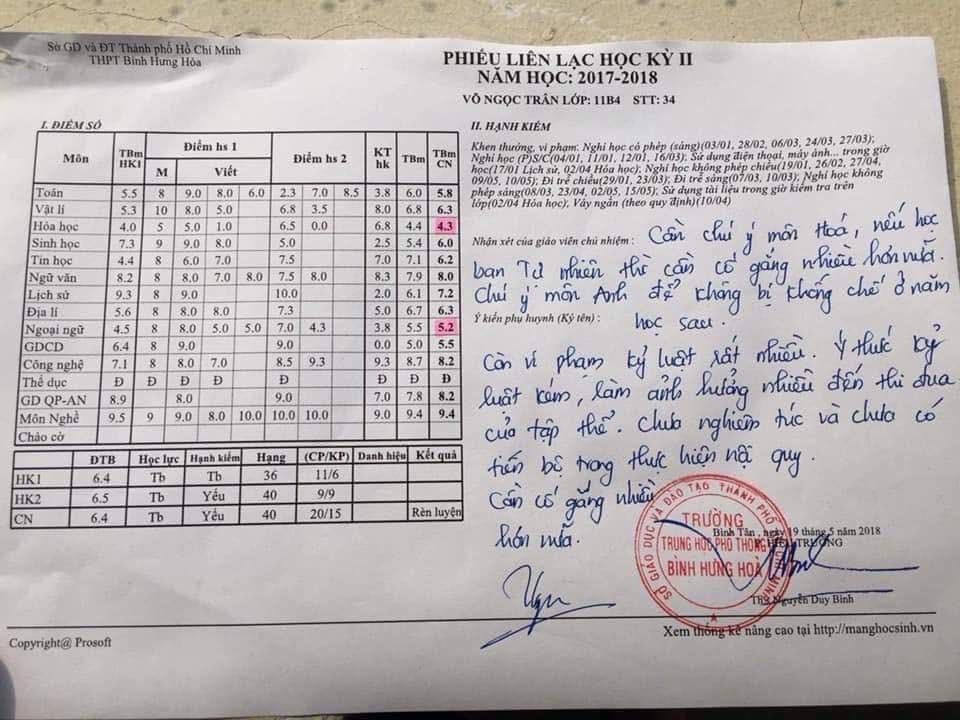 Sở GD và ĐT Thành phố Hồ Chí Minh
THPT Bình Hưng Hòa
PHIẾU LIÊN LẠC HỌC KỲ II
NĂM HỌC: 2017-2018
VÕ NGỌC TRÂN LỚP: 11B4 STT: 34
I. ĐIỂM SỐ
Môn TBm HK1 Điểm hs 1 Điểm hs 2 KT hk TBm TBm CN
M Viết
Toán 5.5 8 9.0 8.0 6.0 2.3 7.0 8.5 3.8 6.0 5.8
Vật lí 5.3 10 8.0 5.0 6.8 3.5 8.0 6.8 6.3
Hóa học 4.0 5 5.0 1.0 6.5 0.0 6.8 4.4 4.3
Sinh học 7.3 9 9.0 8.0 5.0 2.5 5.4 6.0
Tin học 4.4 8 6.0 7.0 7.5 7.0 7.1 6.2
Ngữ văn 8.2 8 8.0 7.0 8.0 7.5 8.0 8.3 7.9 8.0
Lịch sử 9.3 8 9.0 10.0 2.0 6.1 7.2
Địa lí 5.6 8 8.0 8.0 7.3 5.0 6.7 6.3
Ngoại ngữ 4.5 8 8.0 5.0 5.0 7.0 4.3 3.8 5.5 5.2
GDCD 6.4 8 9.0 9.0 0.0 5.0 5.5
Công nghệ 7.1 8 8.0 7.0 8.5 9.3 9.3 8.7 8.2
Thể dục Đ Đ Đ Đ Đ Đ Đ Đ
GD QP-AN 8.9 8.0 9.0 7.0 7.8 8.2
Môn Nghề 9.5 9 9.0 8.0 10.0 10.0 10.0 9.0 9.4 9.4
Chào cờ
ĐTB Học lực Hạnh kiểm Hạng (CP/KP) Danh hiệu Kết quả
HK1 6.4 Tb Tb 36 11/6
HK2 6.5 Tb Yếu 40 9/9
CN 6.4 Tb Yếu 40 20/15 Rèn luyện
Copyright@ Prosoft
II. HẠNH KIỂM
Khen thưởng, vi phạm: Nghỉ học có phép (sáng)(03/01, 28/02, 06/03, 24/03, 27/03);
Nghỉ học (P)S/C(04/01, 11/01, 12/01, 16/03); Sử dụng điện thoại, máy ảnh... trong giờ
học(17/01 Lịch sử, 02/04 Hóa học); Nghỉ học không phép chiều(19/01, 26/02, 27/04,
09/05, 10/05); Đi trễ chiều(29/01, 23/03); Đi trễ sáng(07/03, 10/03); Nghỉ học không
phép sáng(08/03, 23/04, 02/05, 15/05); Sử dụng tài liệu trong giờ kiểm tra trên
lớp(02/04 Hóa học), Váy ngắn (theo quy định)(10/04)
Nhận xét của giáo viên chủ nhiệm : Cần chú ý môn Hoá, nếu học
ban Tự nhiên thì cần cố gắng nhiều hơn nữa.
Chú ý môn Anh để không bị khống chế ở năm
học sau.
Ý kiến phụ huynh (Ký tên) :
Còn vi phạm kỷ luật rất nhiều. Ý thức kỷ
luật kém, làm ảnh hưởng nhiều đến thi đua
của tập thể. Chưa nghiêm túc và chưa có
tiến bộ trong thực hiện nội quy.
Cần cố gắng nhiều
hơn nữa.
Bình Tân, ngày 19 tháng 5 năm 2018
HIỆU TRƯỞNG
SỞ GIÁO DỤC VÀ ĐÀO TẠO THÀNH PHỐ HỒ CHÍ MINH
TRƯỜNG
TRUNG HỌC PHỔ THÔNG
BÌNH HƯNG HOÀ
ThS Nguyễn Duy Bình
Xem thống kê nâng cao tại http://manghocsinh.vn